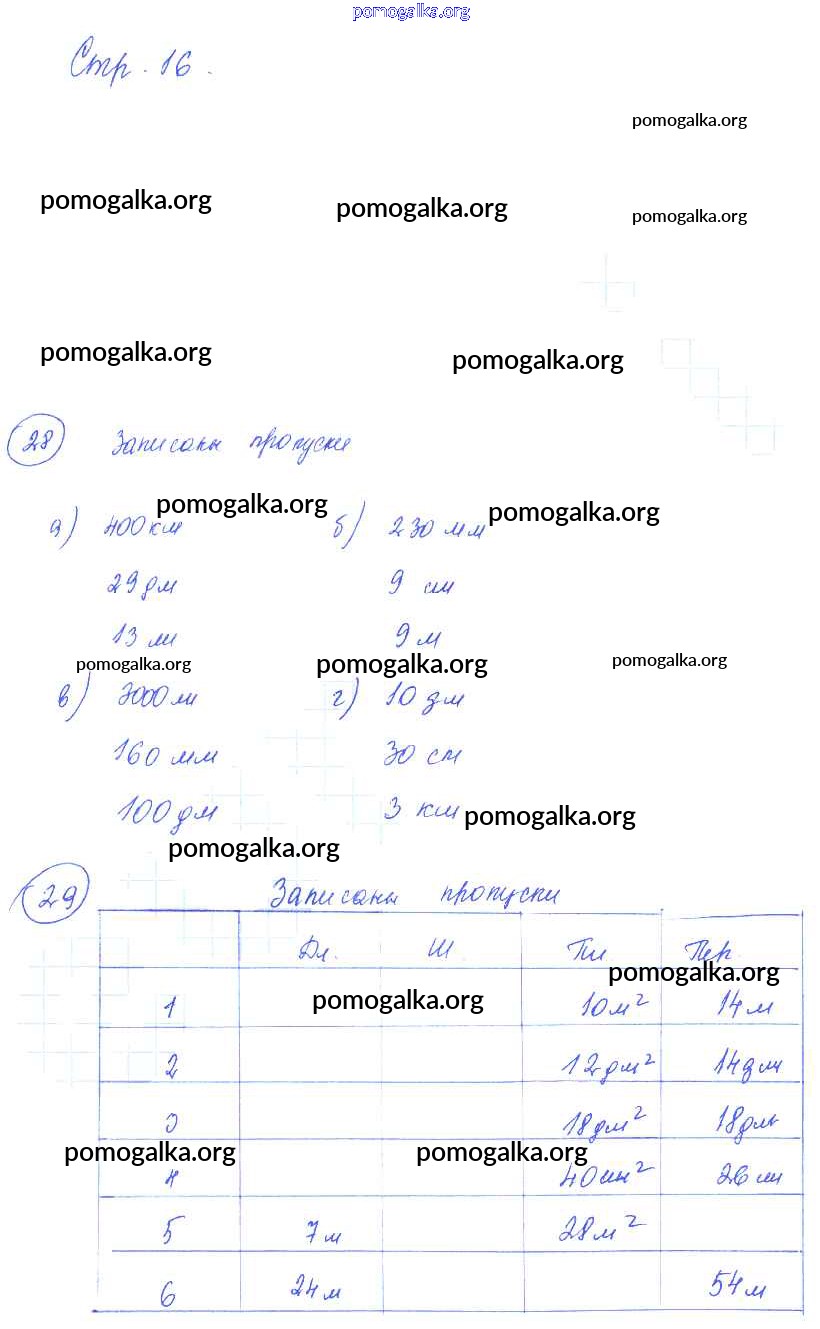 pomogalka.org
Стр. 16.
pomogalka.org
pomogalka.org pomogalka.org pomogalka.org
pomogalka.org pomogalka.org
28 Записаны пропуски
pomogalka.org pomogalka.org
а) 400 км б) 230 мм
29 дм 9 см
13 м 9 м
pomogalka.org pomogalka.org pomogalka.org
в) 3000 м г) 10 дм
160 мм 30 см
100 дм 3 км pomogalka.org
pomogalka.org
29 Записаны пропуски
Дл. Ш Пл Пер.
pomogalka.org
1 pomogalka.org 10 м² 14 м
2 12 дм² 14 дм
3 18 дм² 18 дм
pomogalka.org pomogalka.org
4 40 см² 26 см
5 7 м 28 м²
6 24 м 54 м